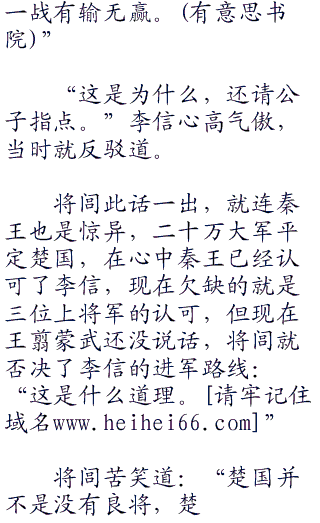 一战有输无赢。(有意思书
院)”
“这是为什么，还请公
子指点。”李信心高气傲，
当时就反驳道。
将闾此话一出，就连秦
王也是惊异，二十万大军平
定楚国，在心中秦王已经认
可了李信，现在欠缺的就是
三位上将军的认可，但现在
王翦蒙武还没说话，将闾就
否决了李信的进军路线：
“这是什么道理。[请牢记住
域名www.heihei66.com]”
将闾苦笑道：“楚国并
不是没有良将，楚